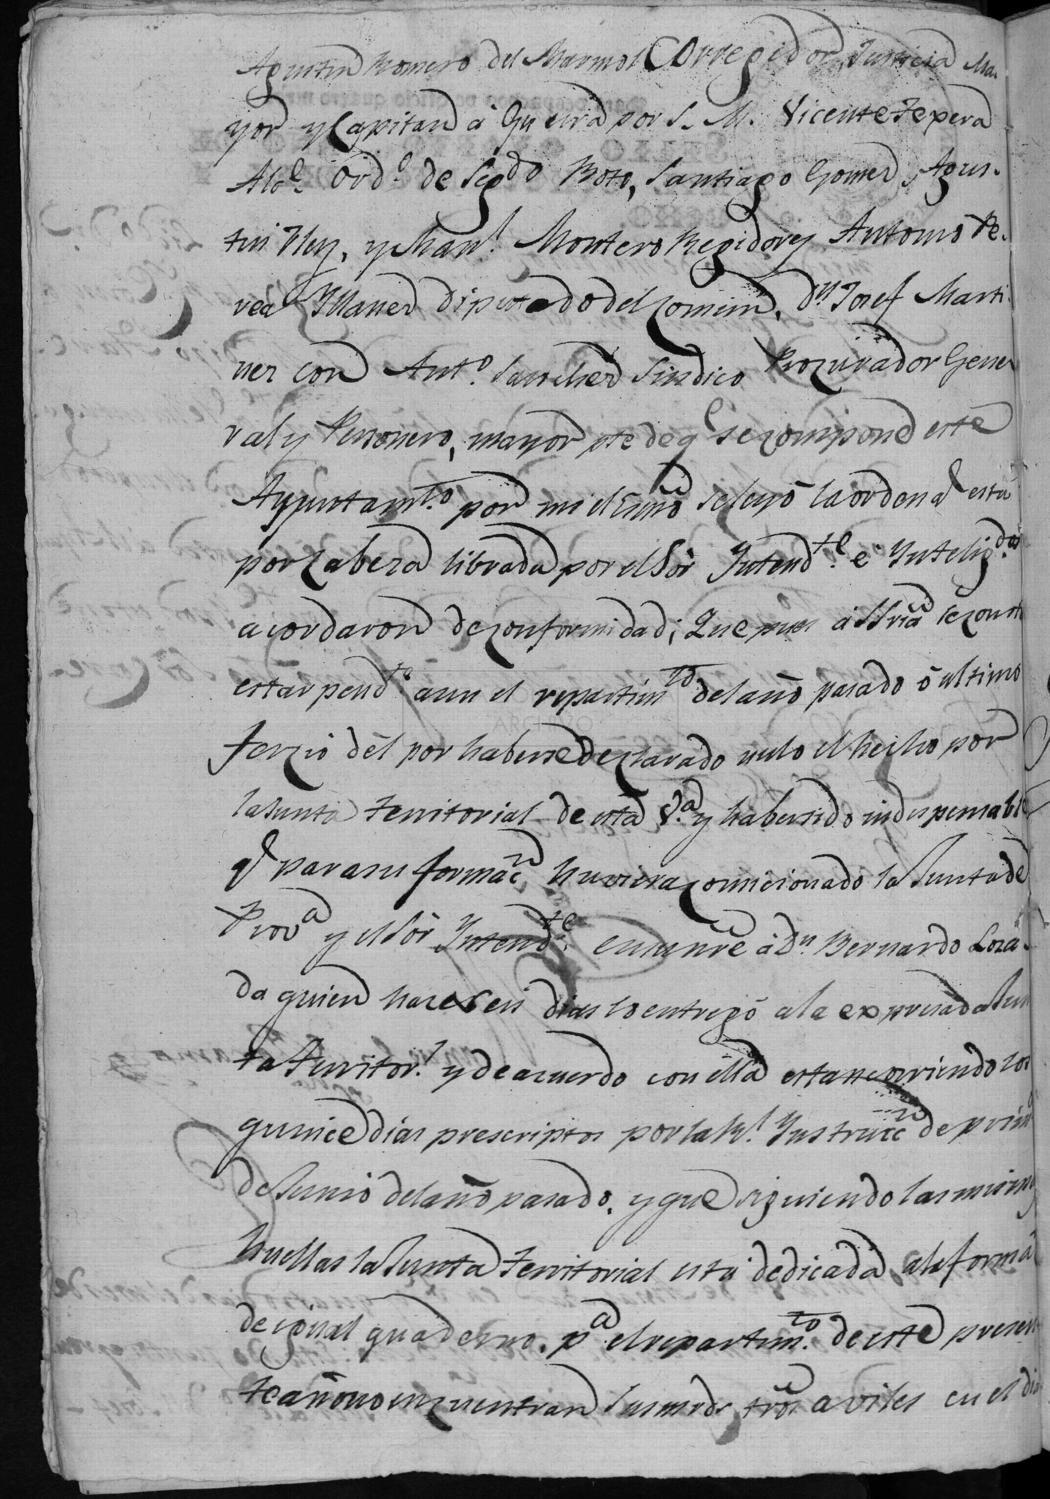 Agustin Romero del Marmol Corregidor Justicia Ma-
yor y Capitan á Guerra por S. M. Vicente Tepera
Alce. Ordo. de Segdo Voto, Santiago Gomez, Agus-
tin Rey, y Manl. Montero Regidores Antonio Pe-
rea Yllanez diputado del Comun, Dn Josef Marti-
nez con Anto. Sanchez Sindico Procurador Gene-
ral y Personero, mayor pte de q se compone este
Ayuntamto. por mi el Esno se leyó la orden q está
por cabeza librada por el Sor Yntendte. e Ynteligdos
acordaron de conformidad; Que pues á SSria le consta
estar pendte aun el repartimto del año pasado ó ultimo
Tercio del por haberse declarado nulo el hecho por
la Junta Territorial de esta Va. y haber sido indispensable
q para su formacn huviera comicionado la Junta de
Prova y el Sor Yntendte. á Dn. Bernardo Loza-
da quien hace seis dias lo entregó a la expresada Jun-
ta Territorl. y de acuerdo con ella estan corriendo los
quince dias prescriptos por la Rl. Ynstruccn de primo
de Junio del año pasado, y que siguiendo las mismas
huellas la Junta Territorial está dedicada a la formacn
de igual quaderno pa el repartimto. de este presen-
te año no encuentran Sus mrds tros aviles en el dia